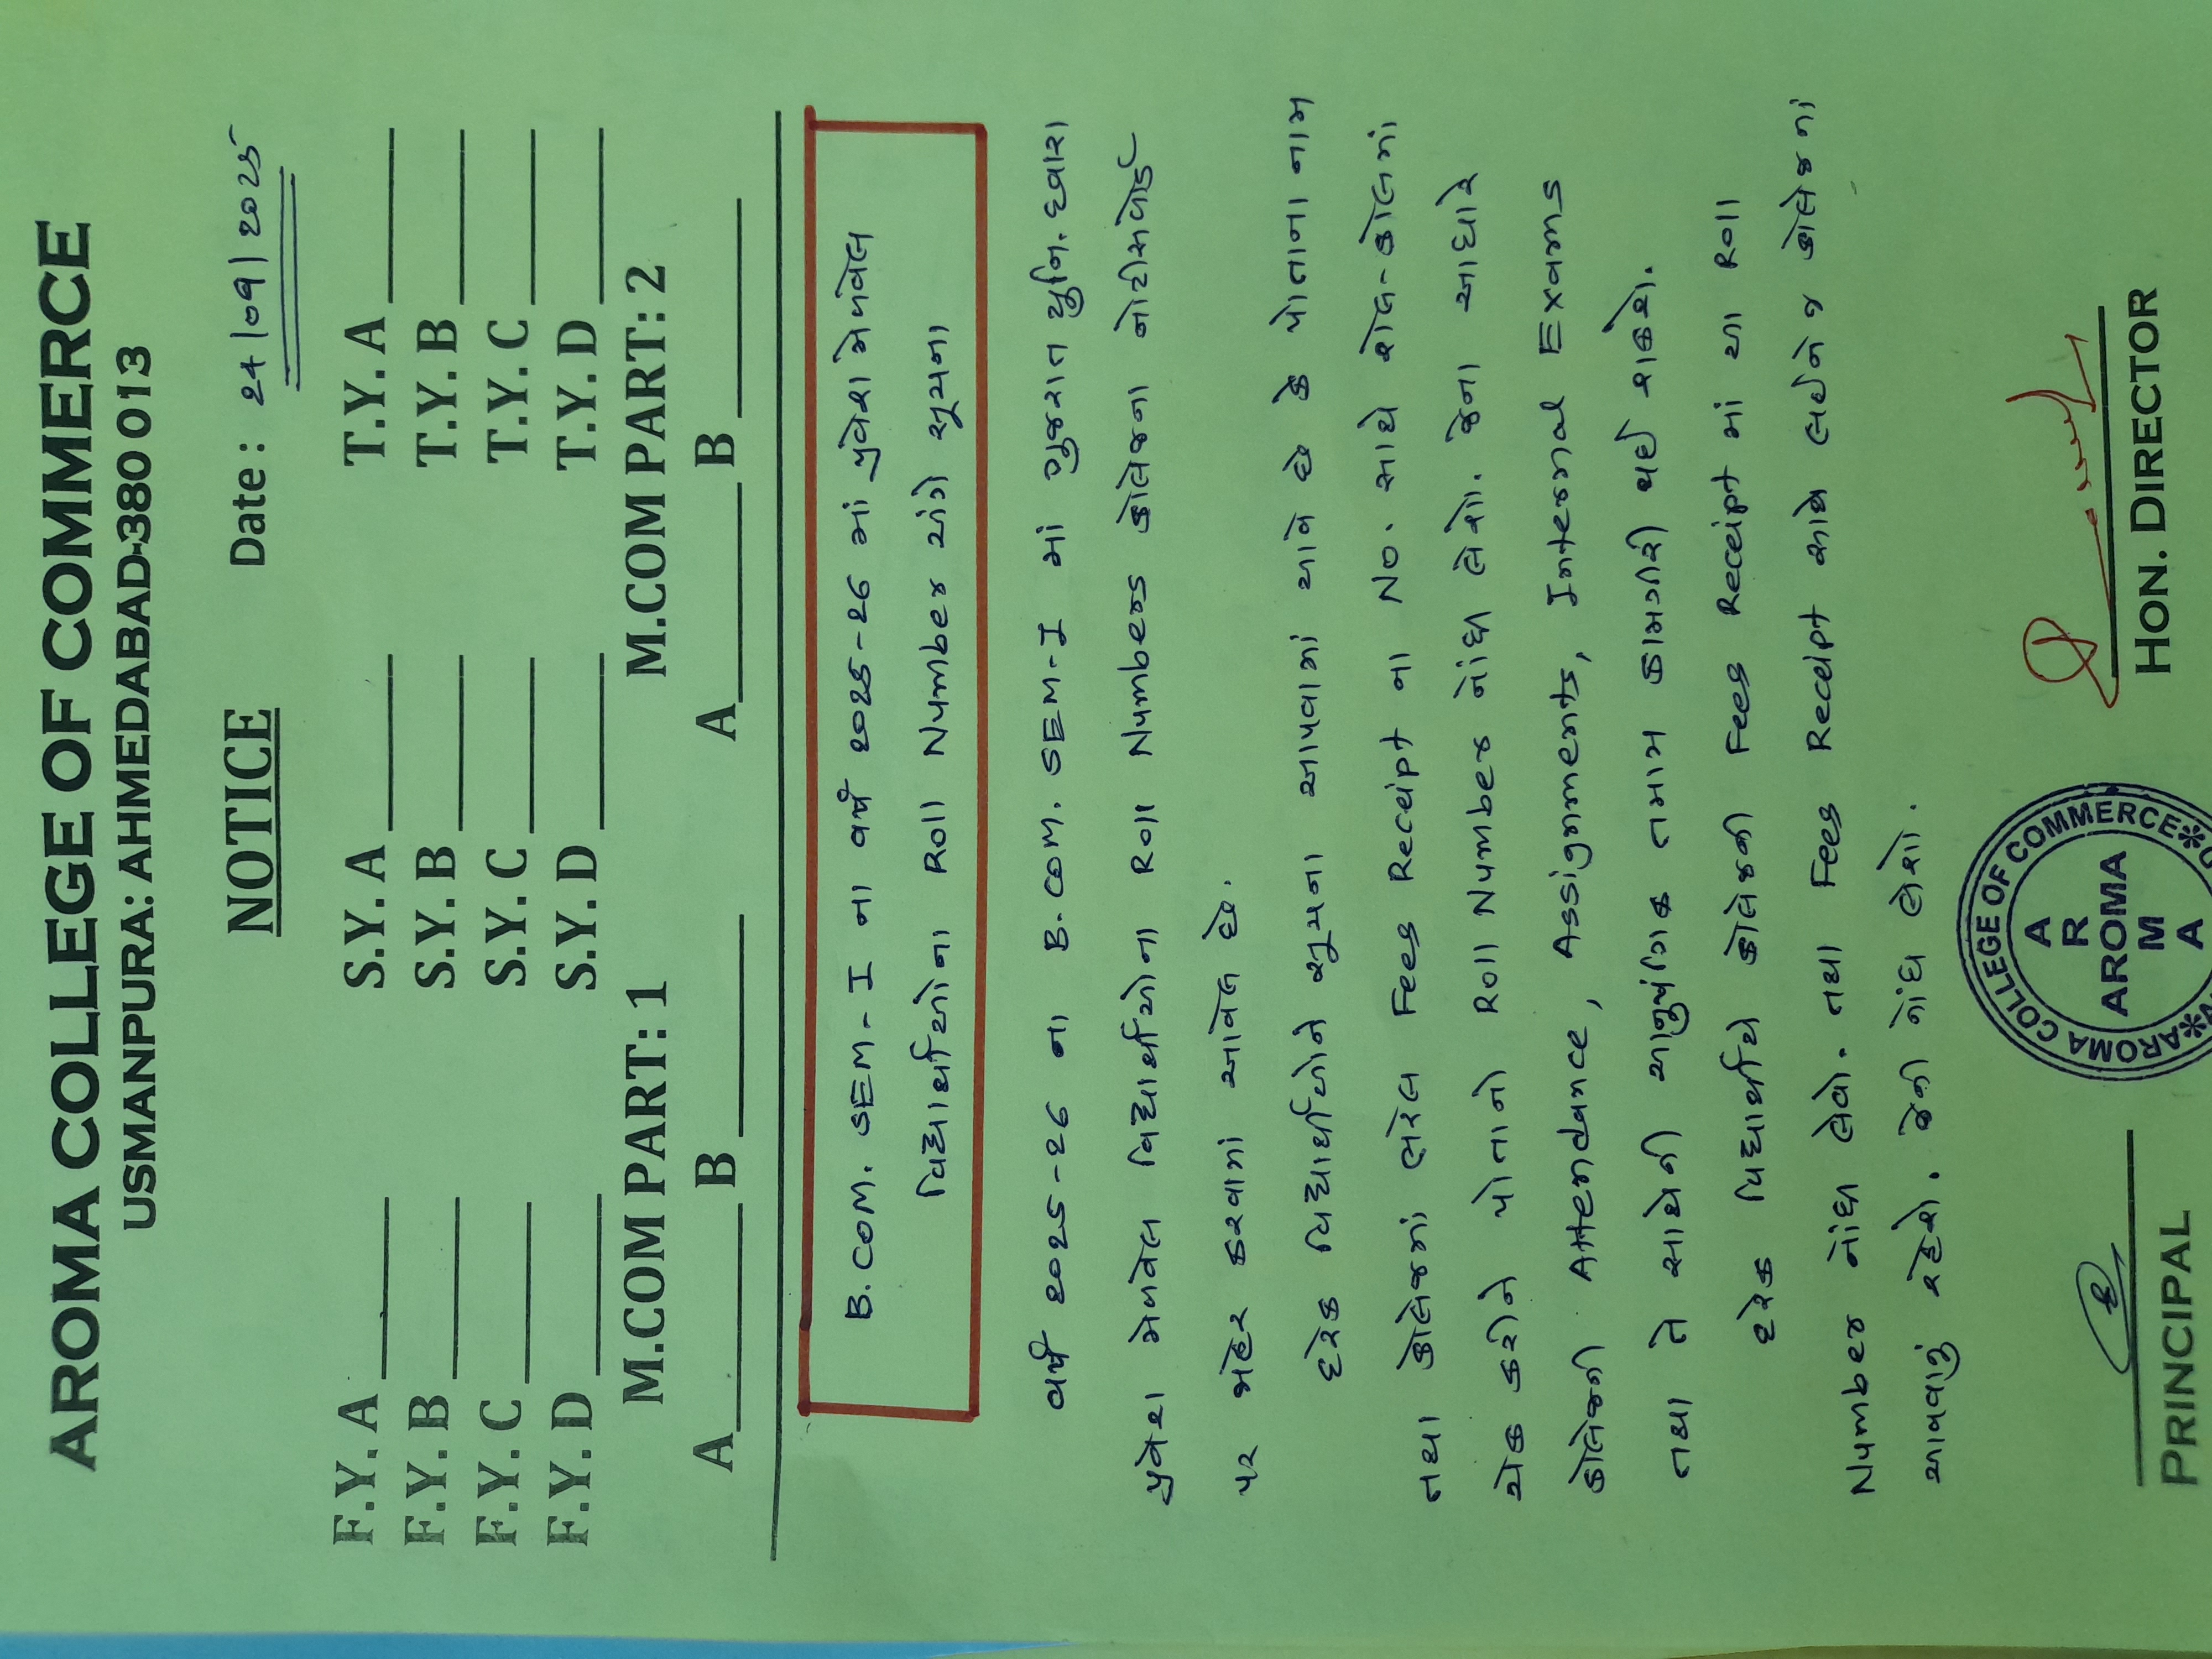 AROMA COLLEGE OF COMMERCE
USMANPURA: AHMEDABAD-380 013
NOTICE
Date: 24/09/2025
F.Y. A S.Y. A T.Y. A
F.Y. B S.Y. B T.Y. B
F.Y. C S.Y. C T.Y. C
F.Y. D S.Y. D T.Y. D
M.COM PART: 1 M.COM PART: 2
A B A B
B.COM. SEM-I ના વર્ષ ૨૦૨૫-૨૬ માં પ્રવેશ મેળવેલ
વિદ્યાર્થીઓના Roll Number અંગે સૂચના
વર્ષ ૨૦૨૫-૨૬ ના B.COM. SEM-I માં ગુજરાત યુનિ. દ્વારા
પ્રવેશ મેળવેલ વિદ્યાર્થીઓના Roll Numbers કોલેજના નોટીસબોર્ડ
પર જાહેર કરવામાં આવેલ છે.
દરેક વિદ્યાર્થીઓને સૂચના આપવામાં આવે છે કે પોતાના નામ
તથા કોલેજમાં ભરેલ Fees Receipt ના No. સાથે રોલ-કોલમાં
ચેક કરીને પોતાનો Roll Number નોંધી લેશો. જેના આધારે
કોલેજની Attendance, Assignments, Internal Exams
તથા તે સાથેની આનુષંગિક તમામ કામગીરી થઈ શકેશે.
દરેક વિદ્યાર્થીએ કોલેજની Fees Receipt માં આ Roll
Number નોંધી લેવો. તથા Fees Receipt સાથે લઈને જ કોલેજમાં
આવવાનું રહેશે. જેની નોંધ લેશો.
PRINCIPAL
AROMA COLLEGE OF COMMERCE
A
R
AROMA
M
A
HON. DIRECTOR